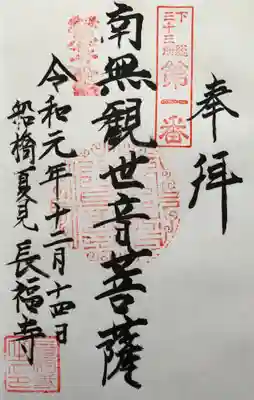 奉拝
下総
三十三所
第一番
南無観世音菩薩
令和元年十二月十四日
船橋夏見 長福寺